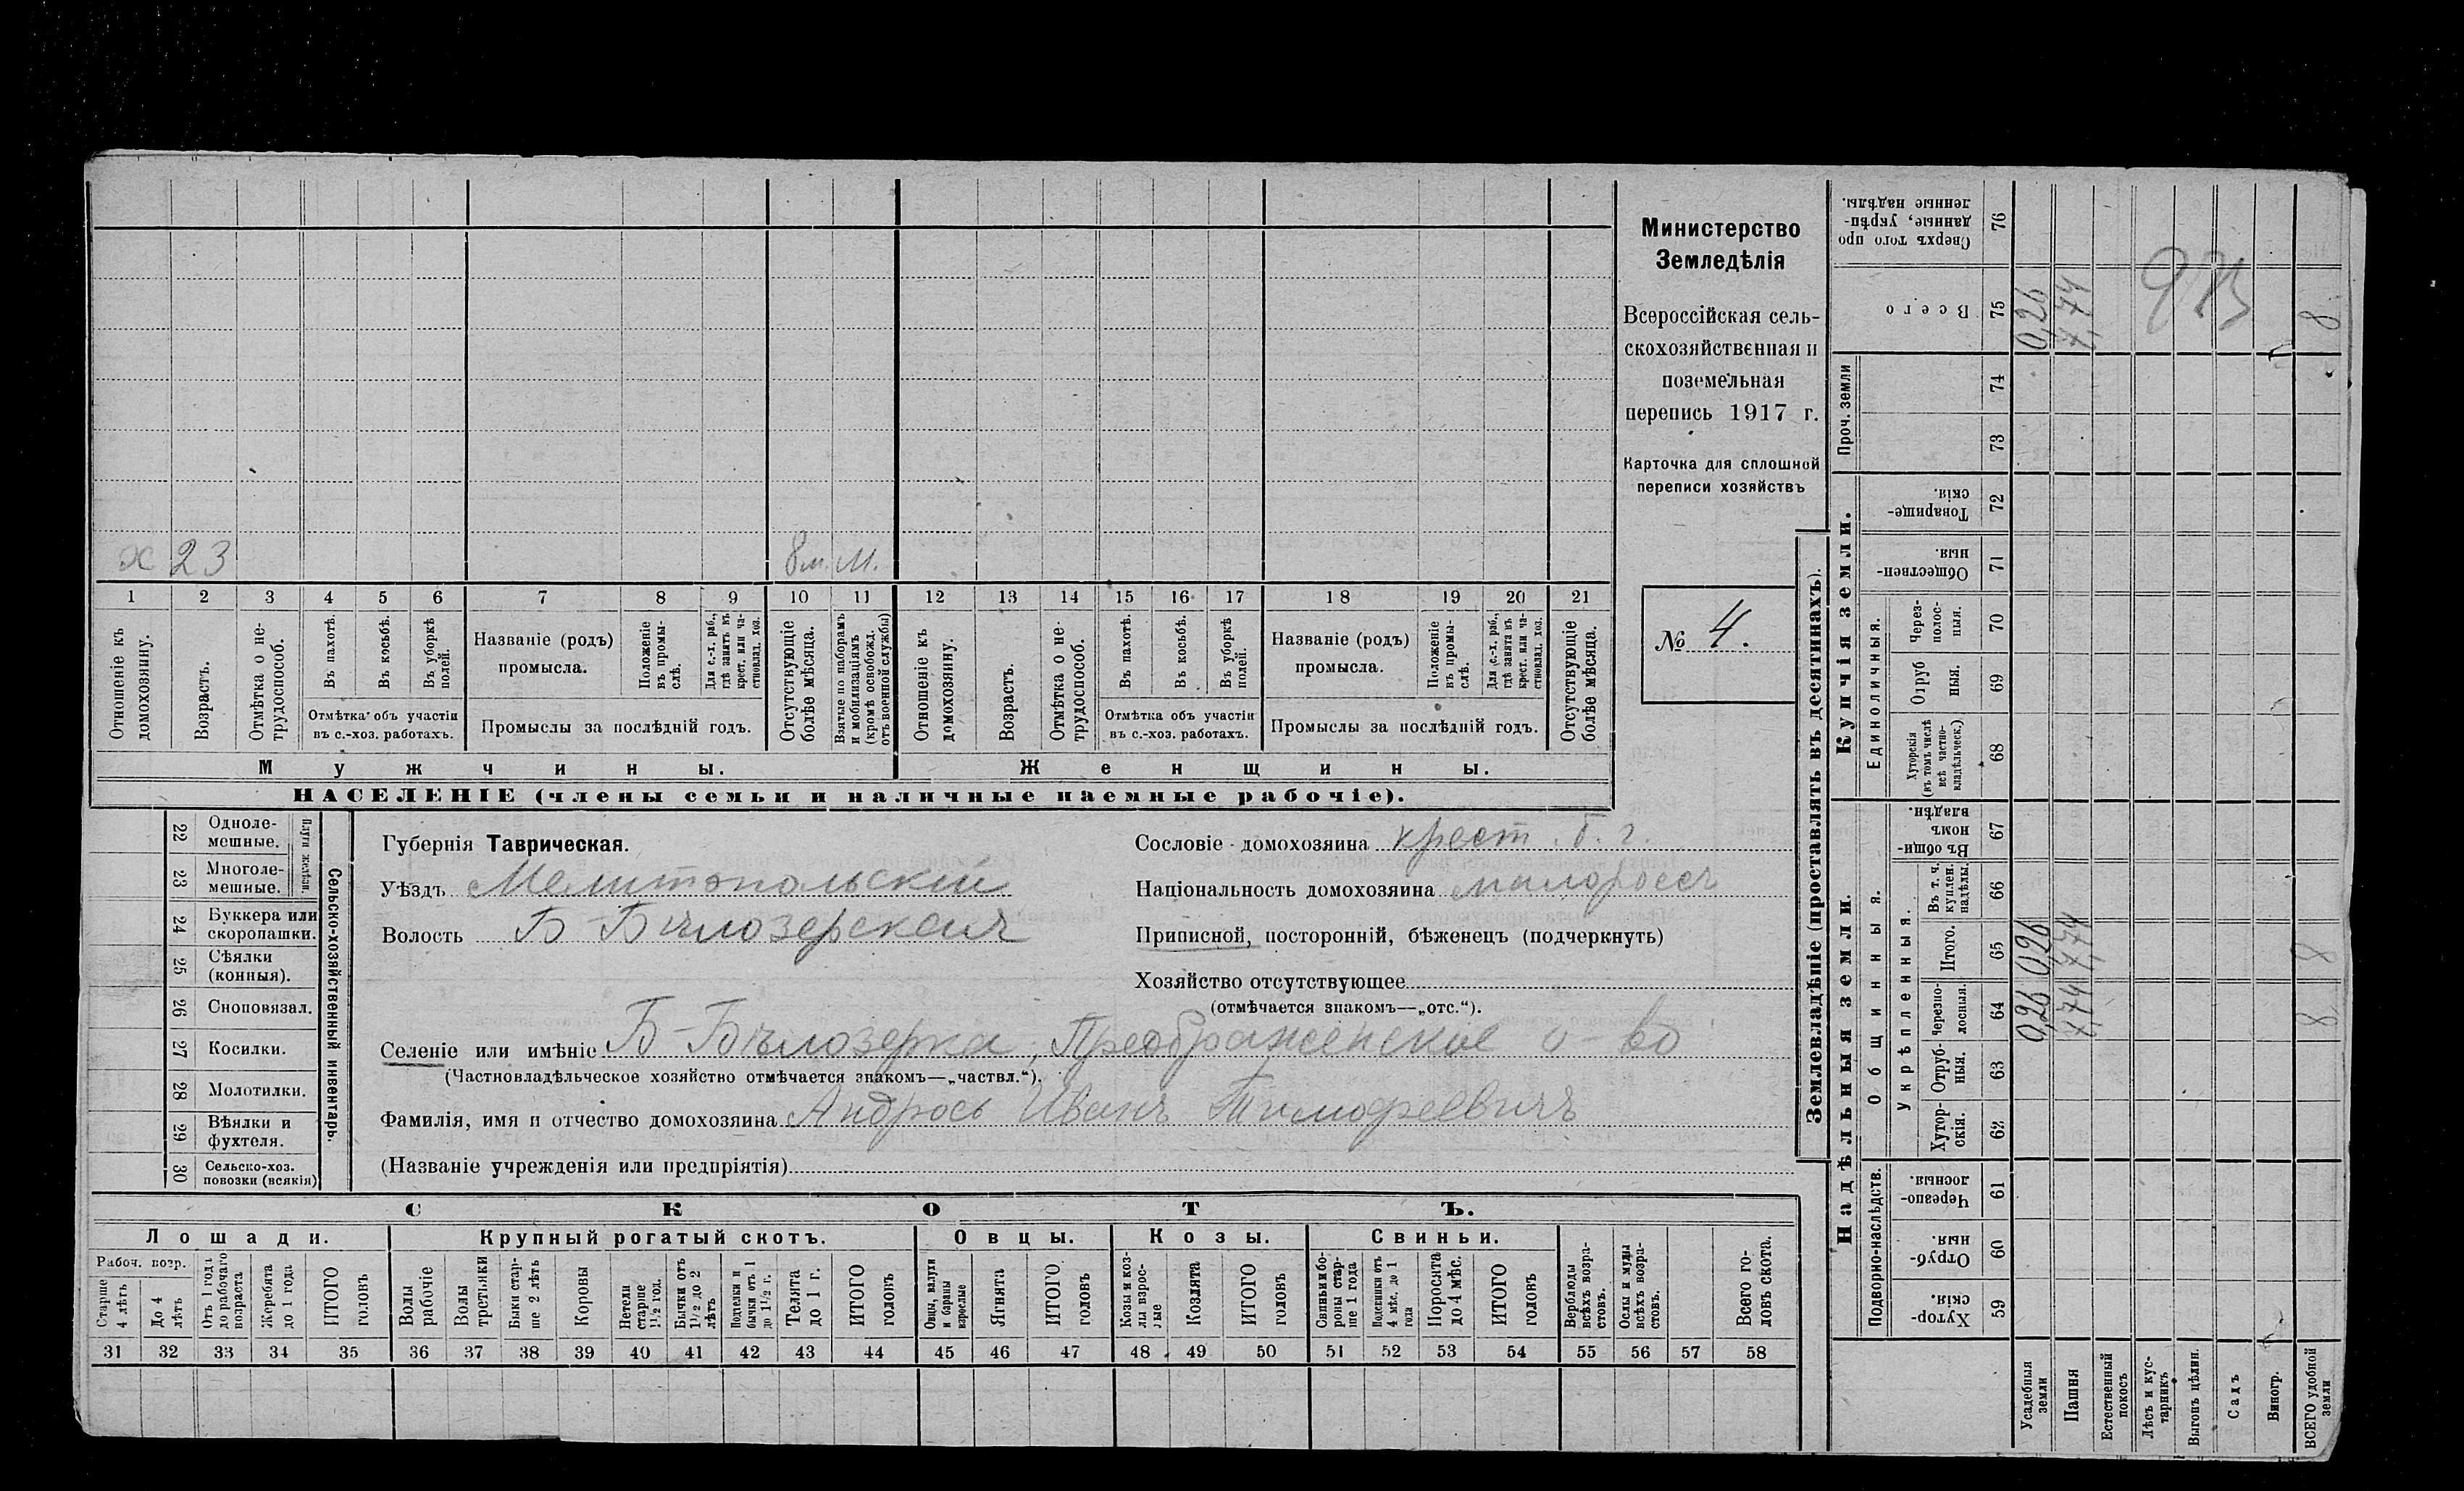 Министерство
Земледѣлія
Всероссійская сель-
скохозяйственная и
поземельная
перепись 1917 г.
Карточка для сплошной
переписи хозяйствъ
№ 4.
х 23 8 м. М.
1 2 3 4 5 6 7 8 9 10 11 12 13 14 15 16 17 18 19 20 21
Отношеніе къ домохозяину.
Возрастъ.
Отмѣтка о не-трудоспособ.
Въ пахотѣ.
Въ косьбѣ.
Въ уборкѣ полей.
Отмѣтка объ участіи
въ с.-хоз. работахъ.
Названіе (родъ)
промысла.
Положеніе въ промы-слѣ.
Для с.-х. раб., гдѣ занятъ въ крест. или ча-стновлад. хоз.
Промыслы за послѣдній годъ.
Отсутствующіе болѣе мѣсяца.
Взятые по наборамъ и мобилизаціямъ (кромѣ освобожд. отъ военной службы)
Отношеніе къ домохозяину.
Возрастъ.
Отмѣтка о не-трудоспособ.
Въ пахотѣ.
Въ косьбѣ.
Въ уборкѣ полей.
Отмѣтка объ участіи
въ с.-хоз. работахъ.
Названіе (родъ)
промысла.
Положеніе въ промы-слѣ.
Для с.-х. раб., гдѣ заняты въ крест. или ча-стновлад. хоз.
Промыслы за послѣдній годъ.
Отсутствующіе болѣе мѣсяца.
Мужчины. Женщины.
НАСЕЛЕНІЕ (члены семьи и наличные наемные рабочіе).
22 Одноле-мешные.
23 Многоле-мешные.
Плуги желѣзн.
24 Буккера или скоропашки.
25 Сѣялки (конныя).
26 Сноповязал.
27 Косилки.
28 Молотилки.
29 Вѣялки и фухтеля.
30 Сельско-хоз. повозки (всякія)
Сельско-хозяйственный инвентарь.
Губернія Таврическая.
Уѣздъ Мелитопольскій
Волость Б-Бѣлозерская
Сословіе домохозяина крест. Б. г.
Національность домохозяина малороссъ
Приписной, посторонній, бѣженецъ (подчеркнуть)
Хозяйство отсутствующее
(отмѣчается знакомъ—„отс.“).
Селеніе или имѣніе Б-Бѣлозерка, Преображенское о-во
(Частновладѣльческое хозяйство отмѣчается знакомъ—„частвл.“).
Фамилія, имя и отчество домохозяина Андрось Иванъ Тимофеевичъ
(Названіе учрежденія или предпріятія)
СКОТЪ.
Лошади. Крупный рогатый скотъ. Овцы. Козы. Свиньи.
Рабоч. возр.
Старше 4 лѣтъ
До 4 лѣтъ
Отъ 1 года до рабочаго возраста
Жеребята до 1 года
ИТОГО головъ
Волы рабочіе
Волы третьяки
Быки стар-ше 2 лѣтъ
Коровы
Нетели старше 1½ год.
Бычки отъ 1½ до 2 лѣтъ
Подтелки и бычки отъ 1 до 1½ г.
Телята до 1 г.
ИТОГО головъ
Овцы, валухи и бараны взрослые
Ягнята
ИТОГО головъ
Козы и коз-лы взрос-лые
Козлята
ИТОГО головъ
Свиньи и бо-ровы стар-ше 1 года
Подсвинки отъ 4 мѣс. до 1 года
Поросята до 4 мѣс.
ИТОГО головъ
Верблюды всѣхъ возра-стовъ.
Ослы и мулы всѣхъ возра-стовъ.
Всего го-ловъ скота.
31 32 33 34 35 36 37 38 39 40 41 42 43 44 45 46 47 48 49 50 51 52 53 54 55 56 57 58
Землевладѣніе (проставлять въ десятинахъ).
Надѣльныя земли. Купчія земли.
Проч. земли
Подворно-наслѣдств.
Общинныя.
Укрѣпленныя.
Единоличныя.
Сверхъ того про-данные, укрѣп-ленные надѣлы. 76
Всего 75 0,26 7,74 8
74
73
Товарище-скія. 72
Обществен-ныя. 71
Через-полос-ныя. 70
Отруб-ныя. 69
Хуторскія (въ томъ числѣ всѣ частно-владѣльческ.) 68
Въ общи-номъ владѣн. 67
Въ т. ч. куплен. надѣлы. 66
Итого. 65 0,26 7,74 8
Черезпо-лосныя. 64 0,26 7,74 8
Отруб-ныя. 63
Хутор-скія. 62
Черезпо-лосныя. 61
Отруб-ныя. 60
Хутор-скія. 59
Усадебныя земли
Пашня
Естественный покосъ
Лѣсъ и кус-тарникъ
Выгонъ цѣлин.
Садъ
Виногр.
ВСЕГО удобной земли